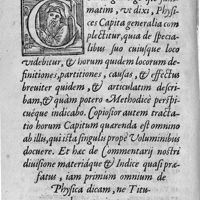 matim, ut dixi, Physi
ces Capita generalia com
plectitur, quia de specia
libus suo cuiusque loco
videbitur, & horum quidem locorum de
finitiones, partitiones, causas, & effectus
breuiter quidem, & articulatim descri
bam, & quàm potero Methodicè perspi
cueque indicabo. Copiosior autem tracta
tio horum Capitum quærenda est omnino
ab illis, qui ista singulis propè Voluminibus
docuere. Et hæc de Commentarij nostri
diuisione materiáque & Indice quasi præ
fatus, iam primum omnium de
Physica dicam, ne Titu